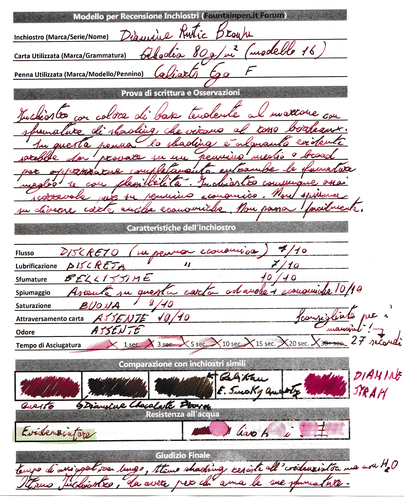 Modello per Recensione Inchiostri (Fountainpen.it Forum)
Inchiostro (Marca/Serie/Nome) Diamine Rustic Brown
Carta Utilizzata (Marca/Grammatura) 80g/m² (modello 16)
Penna Utilizzata (Marca/Modello/Pennino) Caliarts Ego F
Prova di scrittura e Osservazioni
Inchiostro con colore di base tendente al marrone con
sfumature di shading che virano al rosso bordeaux.
In questa penna lo shading è alquanto evidente
sarebbe da provare su un pennino medio o broad
per apprezzare completamente entrambe le sfumature
meglio se con flessibilità. Inchiostro comunque assai
su pennino economico. Non spiuma
su diverse carte anche economiche. Non passa facilmente.
Caratteristiche dell'inchiostro
Flusso DISCRETO (in penna economica) 7/10
Lubrificazione DISCRETA " 7/10
Sfumature BELLISSIME 10/10
Spiumaggio Assente su questa carta ed anche economiche 10/10
Saturazione BUONA 8/10
Attraversamento carta ASSENTE 10/10 Sconsigliato per i
Odore ASSENTE mancini!
Tempo di Asciugatura 1 sec. 3 sec. 5 sec. 10 sec. 15 sec. 20 sec. 27 secondi
Comparazione con inchiostri simili
E. Smoky Quartz DIAMINE
SYRAH
Questo Diamine Chocolate Brown
Resistenza all'acqua
Evidenziatore
Giudizio Finale
tempo di lungo, Ottimo shading resiste all'evidenziatore ma non H₂O
Ottimo Inchiostro, da avere per chi ama le sue sfumature.